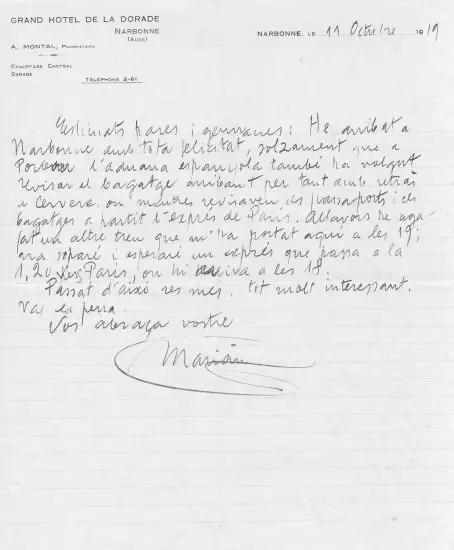 GRAND HOTEL DE LA DORADE
NARBONNE
(AUDE)
A. MONTAL, PROPRIÉTAIRE
CHAUFFAGE CENTRAL
GARAGE
TÉLÉPHONE 2-61
NARBONNE, LE 11 Octubre 1919
Estimats pares i germanes: He arribat a
Narbonne amb tota felicitat, solzament que a
l'aduana espanyola també ha volgut
revisar el bagatge arribant per tant amb retràs
a Cervere, on mentres revisaven els passaports i els
bagatges a partit l'exprés de Paris. Allavors he aga-
fat un altre tren que m'ha portat aquí a les 19;
ara soparé i esperaré un exprés que passa a la
1,20 vers Paris, on hi arriva a les 18.
Passat d'aixó res més, tot molt interessant.
Vaj la pena.
Vos abraça vostre
Marian